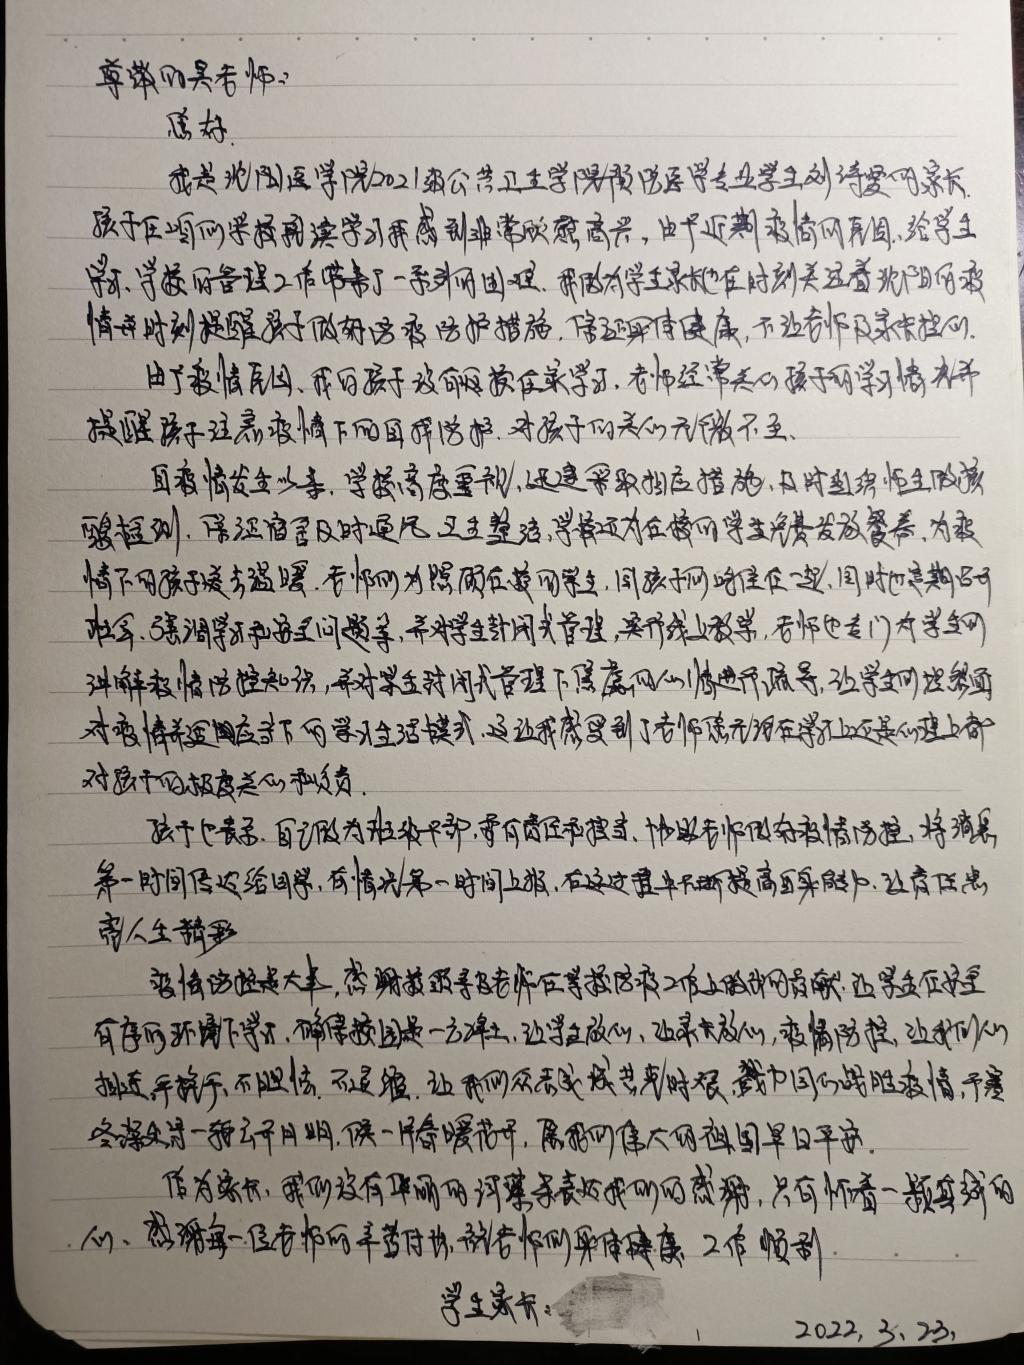 尊敬的吴老师：
您好.
我是沈阳医学院2021级公共卫生学院预防医学专业学生刘诗雯的家长.
孩子在咱们学校就读学习我感到非常欣慰高兴，由于近期疫情的原因,给学生
学习、学校的管理工作带来了一系列的困难.我做为学生家长也在时刻关注着沈阳的疫
情并时刻提醒孩子做好防疫防护措施.保证身体健康,不让老师及家长担心.
由于疫情原因、我的孩子没有返校在家学习.老师经常关心孩子的学习情况并
提醒孩子注意疫情下的自我防护.对孩子的关心无微不至、
自疫情发生以来,学校高度重视,迅速采取相应措施,及时组织师生做核
酸检测.保证宿舍及时通风卫生整洁,学校还为在校的学生免费发放餐券,为疫
情下的孩子送去温暖.老师们为照顾在校的学生,同孩子们吃住在一起,同时也定期召开
班会、强调学习和安全问题等,并对学生封闭式管理,实行线上教学,老师也专门为学生们
讲解疫情防控知识,并对学生封闭式管理下焦虑的心情进行疏导,让学生们坦然面
对疫情并适应当下的学习生活模式.这让我感受到了老师您无论在学习上还是心理上都
对孩子的极度关心和负责.
孩子也表示.自己做为班级干部,要有责任和担当.协助老师做好疫情防控,将消息
第一时间传达给同学,有情况第一时间上报,在这过程中不断提高自身能力.让责任点
亮人生精彩
疫情防控是大事,感谢校领导及老师在学校防疫工作上做出的贡献.让学生在安全
有序的环境下学习.确保校园是一方净土,让学生放心,让家长放心,疫情防控,让我们心
相连,手挽手、不胆怯.不退缩.让我们众志成城共克时艰,戮力同心战胜疫情,于寒
冬深处寻一种云开月明,候一片春暖花开,愿我们伟大的祖国早日平安.
作为家长,我们没有华丽的词藻来表达我们的感谢,只有怀着一颗真诚的
心、感谢每一位老师的辛苦付出,祝老师们身体健康 工作顺利
学生家长：
2022.3.23.